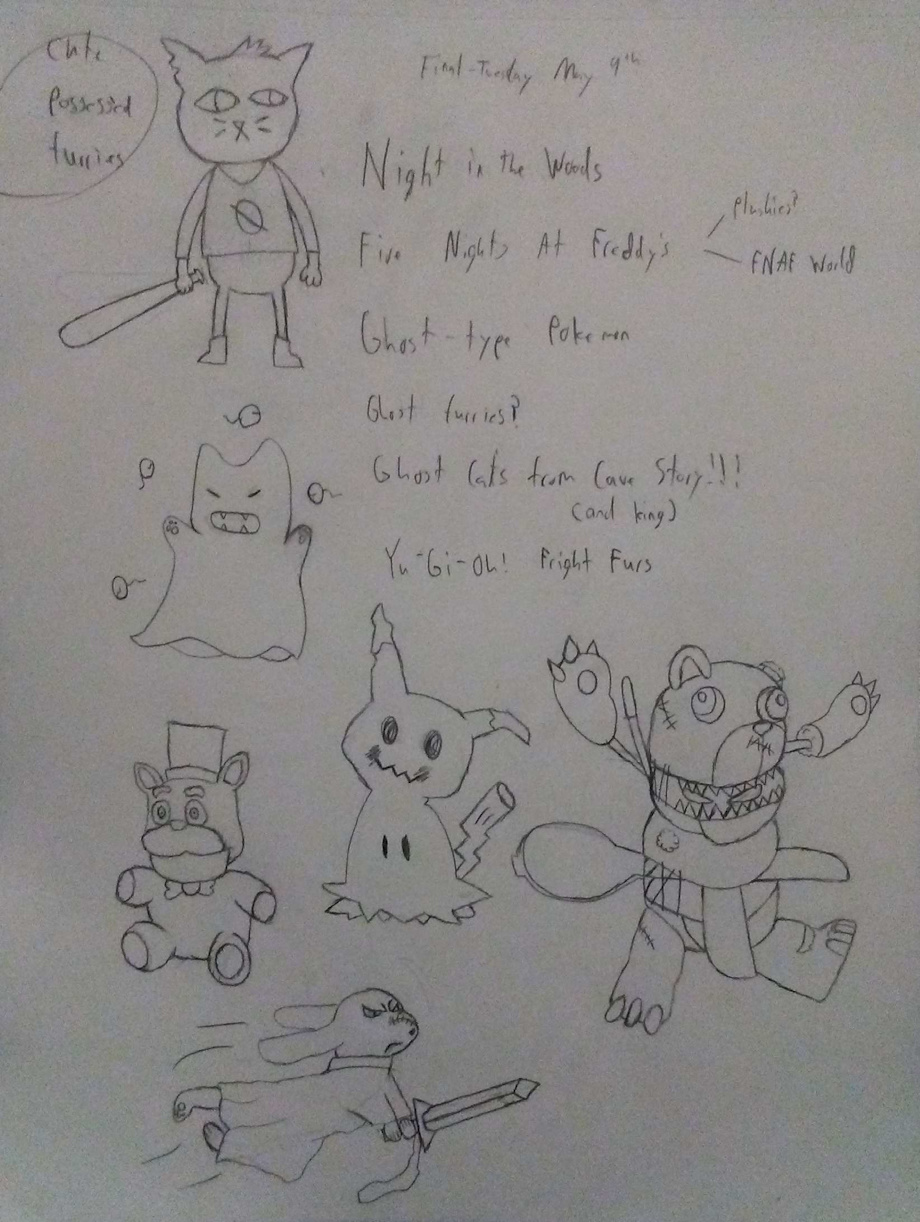 Cute
Possessed
furries
Final-Tuesday May 9th
Night in the Woods
Five Nights At Freddy's
plushies?
FNAF World
Ghost-type Pokemon
Ghost furries?
Ghost Cats from Cave Story!!!
(and king)
Yu-Gi-Oh! Fright Furs